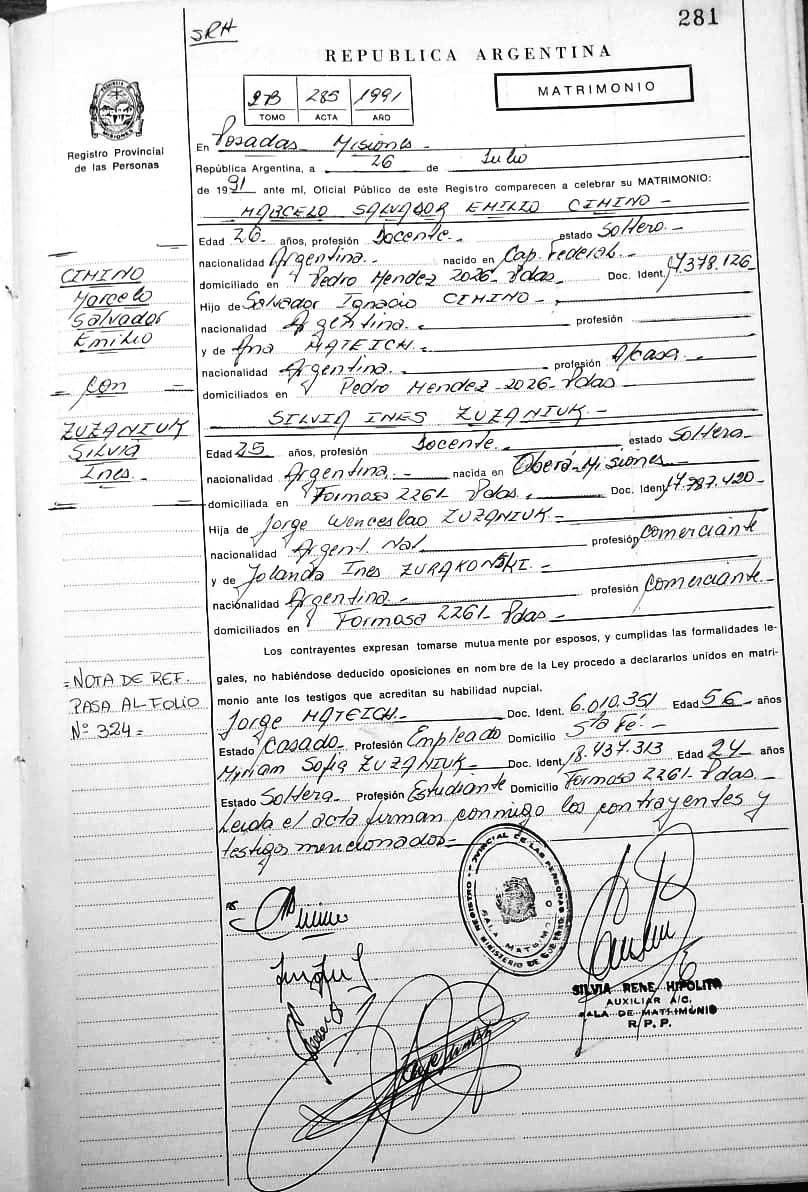 281
SRH
REPUBLICA ARGENTINA
MATRIMONIO
2B 285 1991
TOMO ACTA AÑO
Registro Provincial
de las Personas
En Posadas Misiones
República Argentina, a 26 de Julio
de 1991 ante mí, Oficial Público de este Registro comparecen a celebrar su MATRIMONIO:
MARCELO SALVADOR EMILIO CIMINO
Edad 26 años, profesión Docente estado Soltero
nacionalidad Argentina nacido en Cap. Federal
domiciliado en Pedro Mendez 2026 Pdas Doc. Ident. 17.378.126
Hijo de Salvador Ignacio CIMINO
nacionalidad Argentina profesión
y de Ana MATEICH
nacionalidad Argentina profesión A/casa
domiciliados en Pedro Mendez 2026 Pdas
SILVIA INES ZUZANIUK
Edad 25 años, profesión Docente estado Soltera
nacionalidad Argentina nacida en Oberá Misiones
domiciliada en Formosa 2261 Pdas. Doc. Ident. 17.787.420
Hija de Jorge Wenceslao ZUZANIUK
nacionalidad Argent. Nat. profesión Comerciante
y de Jolanda Ines ZURAKONSKI
nacionalidad Argentina profesión Comerciante
domiciliados en Formosa 2261 Pdas
CIMINO
Marcelo
Salvador
Emilio
= Con =
ZUZANIUK
Silvia
Ines
Los contrayentes expresan tomarse mutuamente por esposos, y cumplidas las formalidades le-
gales, no habiéndose deducido oposiciones en nombre de la Ley procedo a declararlos unidos en matri-
monio ante los testigos que acreditan su habilidad nupcial.
Jorge MATEICH Doc. Ident. 6.010.351 Edad 56 años
Estado Casado Profesión Empleado Domicilio Sta Fé
Myriam Sofia ZUZANIUK Doc. Ident. 18.437.313 Edad 24 años
Estado Soltera Profesión Estudiante Domicilio Formosa 2261 Pdas
Leida el acta firman conmigo los contrayentes y
testigos mencionados
= NOTA DE REF.
PASA AL FOLIO
Nº 324 =
REGISTRO PROVINCIAL DE LAS PERSONAS
MINISTERIO DE GOBIERNO
SILVIA RENE HIPOLITO
AUXILIAR A/C.
SALA DE MATRIMONIO
R. P. P.